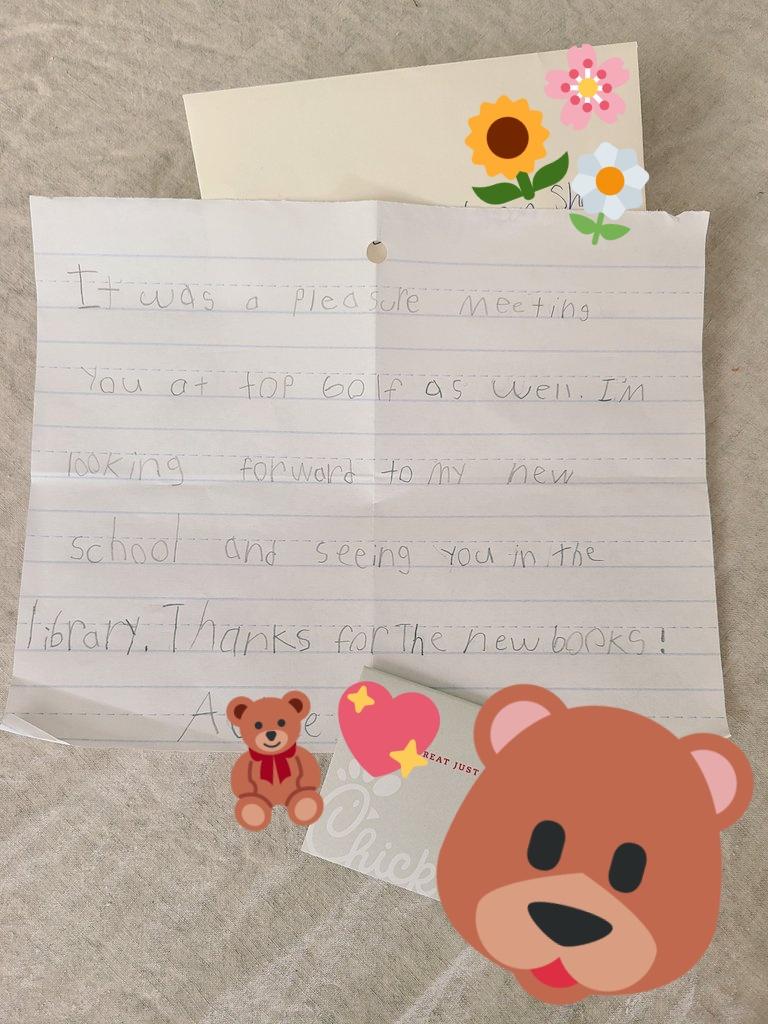 It was a pleasure meeting
you at top Golf as well. I'm
looking forward to my new
school and seeing you in the
library. Thanks for The new books!
REAT JUST
Chick